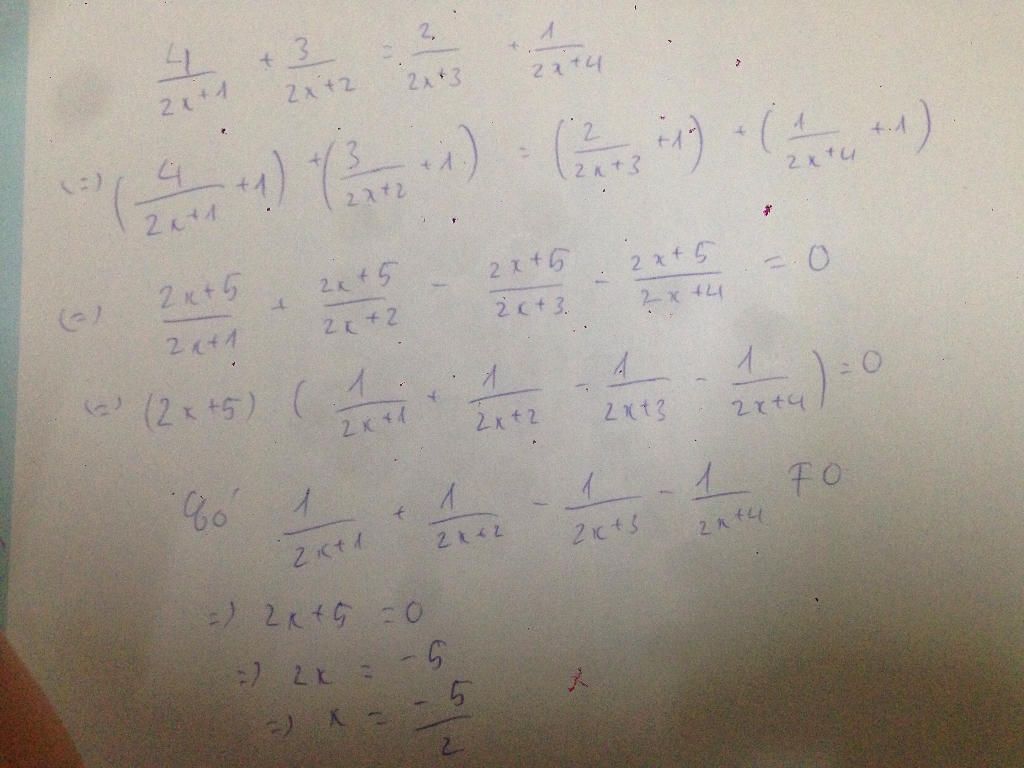 4/(2x+1) + 3/(2x+2) = 2/(2x+3) + 1/(2x+4)
(=) (4/(2x+1) +1) + (3/(2x+2) +1) = (2/(2x+3) +1) + (1/(2x+4) +1)
(=) (2x+5)/(2x+1) + (2x+5)/(2x+2) - (2x+5)/(2x+3) - (2x+5)/(2x+4) = 0
(=) (2x+5) (1/(2x+1) + 1/(2x+2) - 1/(2x+3) - 1/(2x+4)) = 0
1/(2x+1) + 1/(2x+2) - 1/(2x+3) - 1/(2x+4) ≠ 0
=) 2x+5 = 0
=) 2x = -5
=) x = -5/2